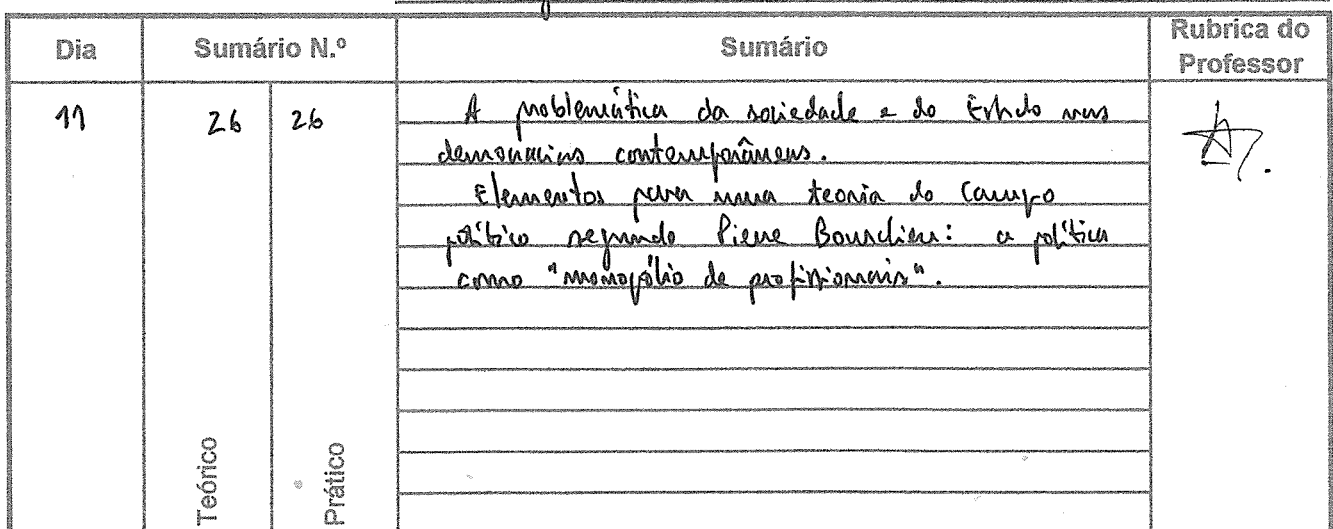 Dia Sumário N.º Sumário Rubrica do Professor
11 26 26 A problemática da sociedade e do Estado nas
democracias contemporâneas.
Elementos para uma teoria do Campo
político segundo Pierre Bourdieu: a política
como "monopólio de profissionais".
Teórico
Prático